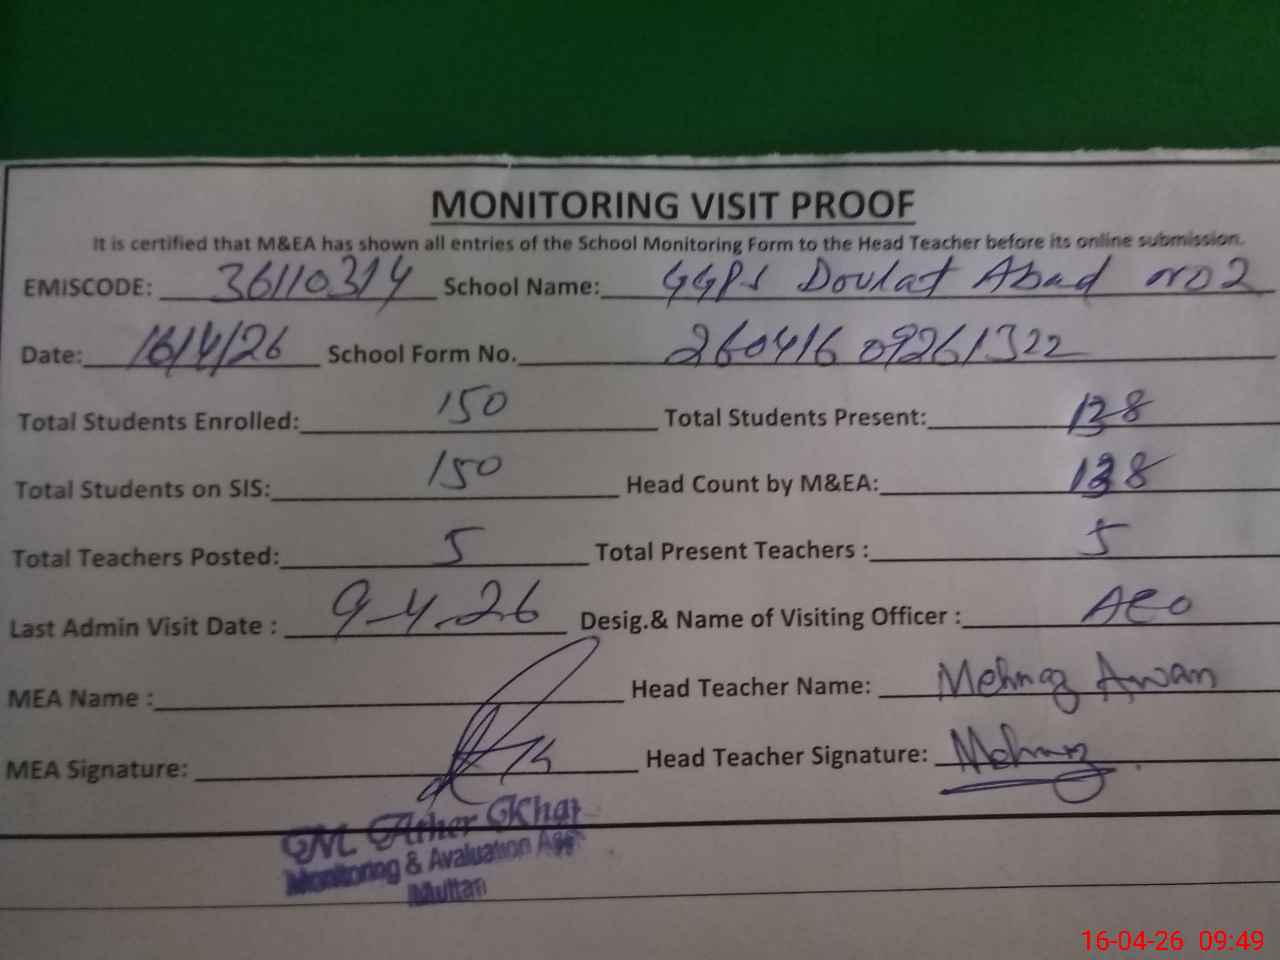 MONITORING VISIT PROOF
It is certified that M&EA has shown all entries of the School Monitoring Form to the Head Teacher before its online submission.
EMISCODE: 36110314 School Name: GGPS Doulat Abad no 2
Date: 16/4/26 School Form No. 260416 09261322
Total Students Enrolled: 150 Total Students Present: 138
Total Students on SIS: 150 Head Count by M&EA: 138
Total Teachers Posted: 5 Total Present Teachers : 5
Last Admin Visit Date : 9-4-26 Desig.& Name of Visiting Officer : AEO
MEA Name : Head Teacher Name: Mehnaz Awan
MEA Signature: Head Teacher Signature: Mehnaz
M. Ather Khan
Monitoring & Avaluation Ass
Multan
16-04-26 09:49